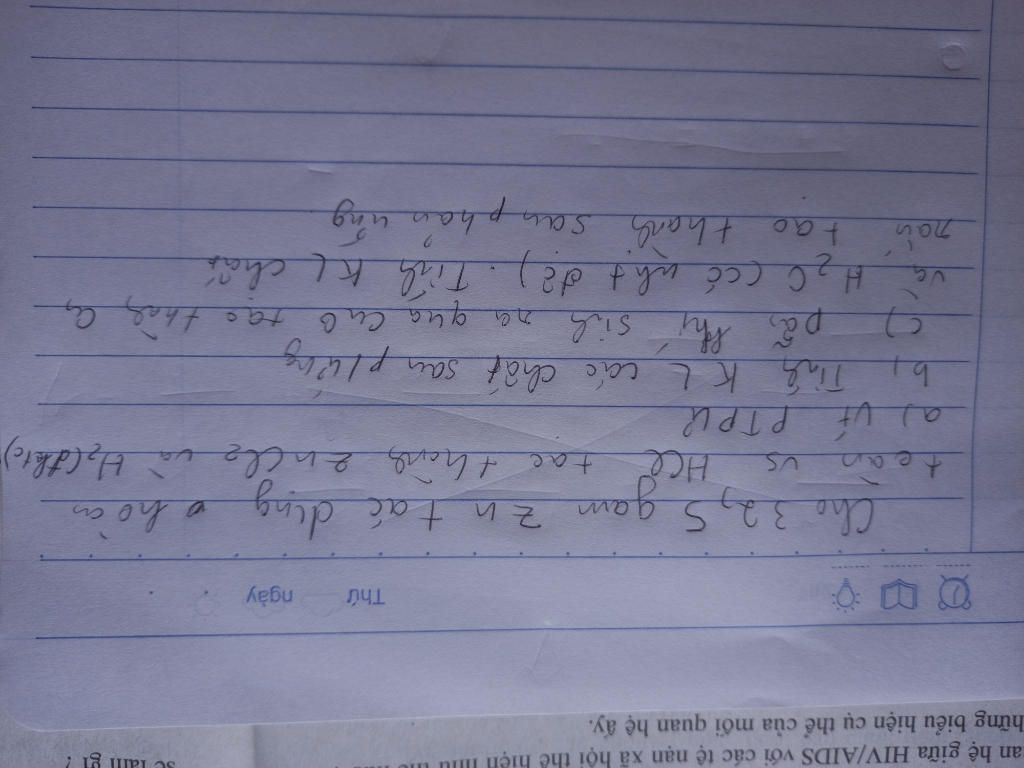 an hệ giữa HIV/AIDS với các tệ nạn xã hội thể hiện như thế
sẽ làm gì ?
hững biểu hiện cụ thể của mối quan hệ ấy.
Thứ ngày
Cho 32,5 gam Zn tác dụng hoàn
toàn vs HCl tạo thành ZnCl2 và H2(đktc)
a) Vt PTPU
b, Tính KL các chất sau pứ
c) khí sinh ra qua CuO tạo thành Cu
và H2O (có nhiệt độ). Tính KL chất
rắn tạo thành sau phản ứng